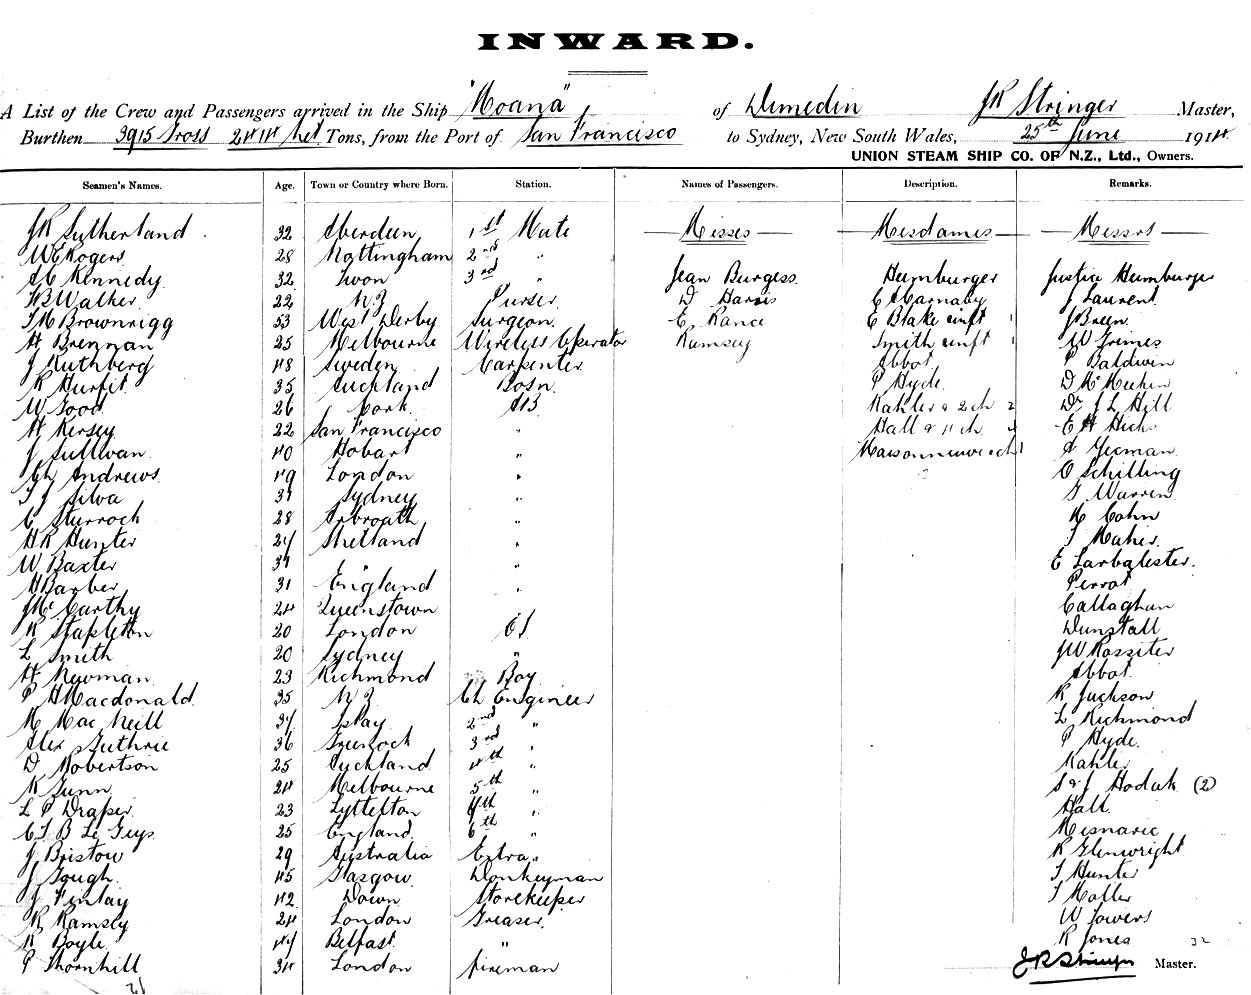 INWARD.
A List of the Crew and Passengers arrived in the Ship "Moana" of Dunedin J R Stringer Master,
Burthen 3915 Gross 2414 Net Tons, from the Port of San Francisco to Sydney, New South Wales, 25th June 1914
UNION STEAM SHIP CO. OF N.Z., Ltd., Owners.
Seamen's Names. Age. Town or Country where Born. Station. Names of Passengers. Description. Remarks.
J R Sutherland 32 Aberdeen 1st Mate Misses Mesdames Messrs
W E Rogers 28 Nottingham 2nd "
Kennedy 32 3rd " Jean Burgess Hemburger Justice Hemburger
W B Walker 22 N Z Purser D Harris C A Carnaby J Laurent
T M Brownrigg 53 West Derby Surgeon E Rance E Blake & inft 1 J Breen
H Brennan 25 Melbourne Wireless Operator Ramsey Smith & inft 1 W Grimes
J Ruthberg 48 Sweden Carpenter Abbot P Baldwin
R Hurfit 35 Auckland Bosn P Hyde D McMeekin
W Good 26 Cork AB Kahler & 2 ch 2 Dr J L Hill
H Kersey 22 San Francisco " Hall & 4 ch 4 E H Hicks
J Sullivan 40 Hobart " Maisonneuve & ch 1 A Yeoman
Ch Andrews 49 London " O Schilling
T J Silva 37 Sydney " G Warren
C Sturrock 28 Arbroath " K Cohn
H R Hunter 27 Shetland " T Maher
W Baxter 37 " " E Larbalester
H Barber 31 England " Perrot
J McCarthy 24 Queenstown Callaghan
R Stapleton 20 London OS Dunstall
L Smith 20 Sydney " J W Rossiter
H Newman 23 Richmond Boy Abbot
P H Macdonald 35 N Z Ch Engineer R Jackson
K MacNeill 37 Islay 2nd " L Richmond
Alex Guthrie 36 Greenock 3rd " P Hyde
D Robertson 25 Auckland 4th " Kahler
R Gunn 24 Melbourne 5th " S & J Hodak (2)
L P Draper 23 Lyttelton " Hall
C T B Le Guys 25 England 6th " Mesnaric
J Bristow 29 Australia Extra " R Glenwright
J Gough 45 Glasgow Donkeyman T Hunter
J Finlay 42 Down Storekeeper T Moller
R Ramsey 24 London Greaser W Towers
R Boyle 47 Belfast " R Jones 32
P Thornhill 34 London Fireman J R Stringer Master.